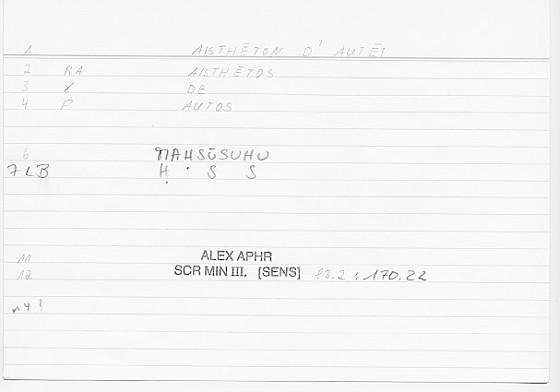 1 AISTHĒTON D' AUTĒI
2 RA AISTHĒTOS
3 X DE
4 P AUTOS
6 MAḤSŪSUHU
7 LB Ḥ S S
11 ALEX APHR
12 SCR MIN III. [SENS] 83.2 : 170.22